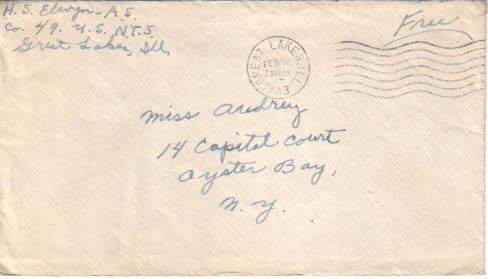 H. S. Elwyn - A.S.
Co. 49. U.S. N.T.S.
Great Lakes, Ill.
Free
GREAT LAKES, ILL.
FEB
1943
Miss Audrey
14 Capitol Court
Oyster Bay,
N.Y.